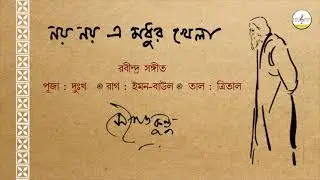 নয় নয় এ মধুর খেলা
রবীন্দ্র সঙ্গীত
পূজা : দুঃখ ◉ রাগ : ইমন-বাউল ◉ তাল : ত্রিতাল